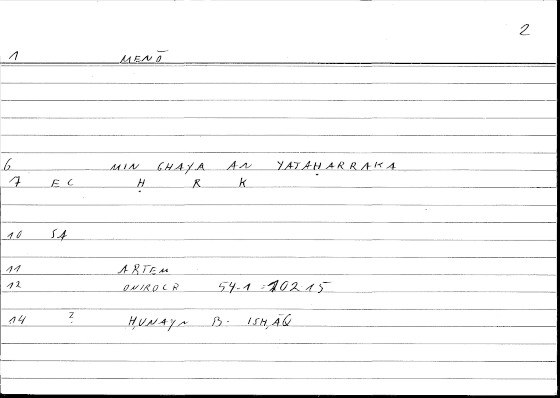 2
1 MENŌ
6 MIN GHAYA AN YATAḤARRAKA
7 EC Ḥ R K
10 SA
11 ARTEM
12 ONIROCR 54-1 : 102.15
14 ? ḤUNAYN B. ISḤĀQ